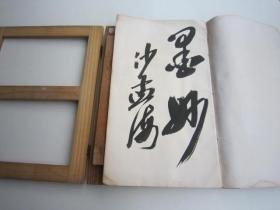 墨妙
沙孟海